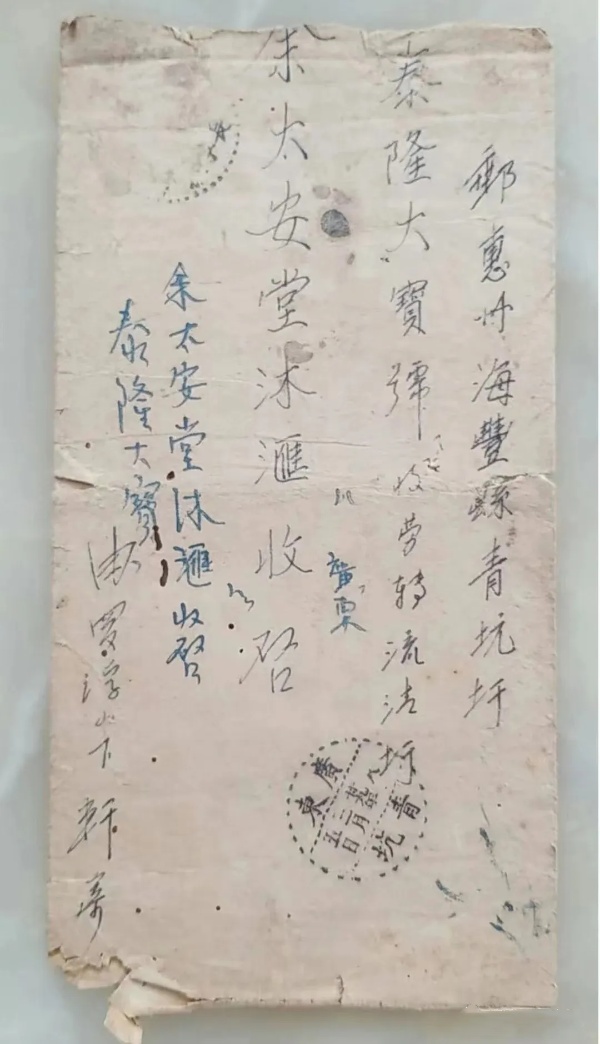 郵惠州海豐縣青坑圩
泰隆大寶號收劳轉流清圩
余太安堂沐滙收啓
廣東
余太安堂沐滙收啓
泰隆大寶
由羅浮山下軒寄
廣東
二月
五日
青坑